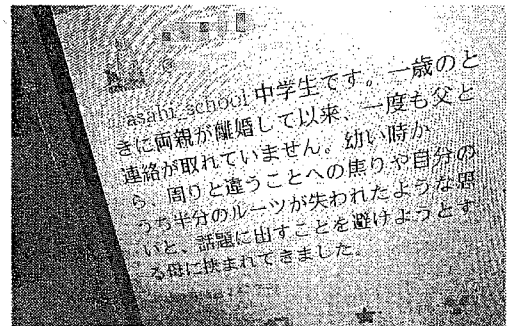 @
asahi_school 中学生です。一歳のと
きに両親が離婚して以来、一度も父と
連絡が取れていません。幼い時か
ら、周りと違うことへの焦りや自分の
うち半分のルーツが失われたような思
いと、話題に出すことを避けようとす
る母に挟まれてきました。